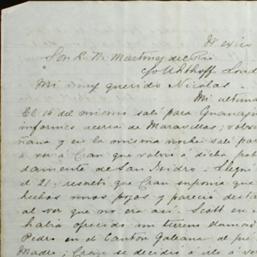 Sor. R. N. Martinez del Rio
c/o Uhthoff Lond
Mi muy querido Nicolas.
Mi ultima
El 16 del mismo salí para Guanaju
informes acerca de Maravillas; volví
nana y en la misma noche salí para
á ver á Cran que volvió á dicho pobl
damente de San Isidro. Llegu
el 21. resultó que Cran suponia que
hechos unos pozos y pareció desta
al ver que no era así. Scott en
habia ofrecido un terreno llamado
Pedro en el Canton Galeana de pro
Madre; Cran se decidió á ir á ver